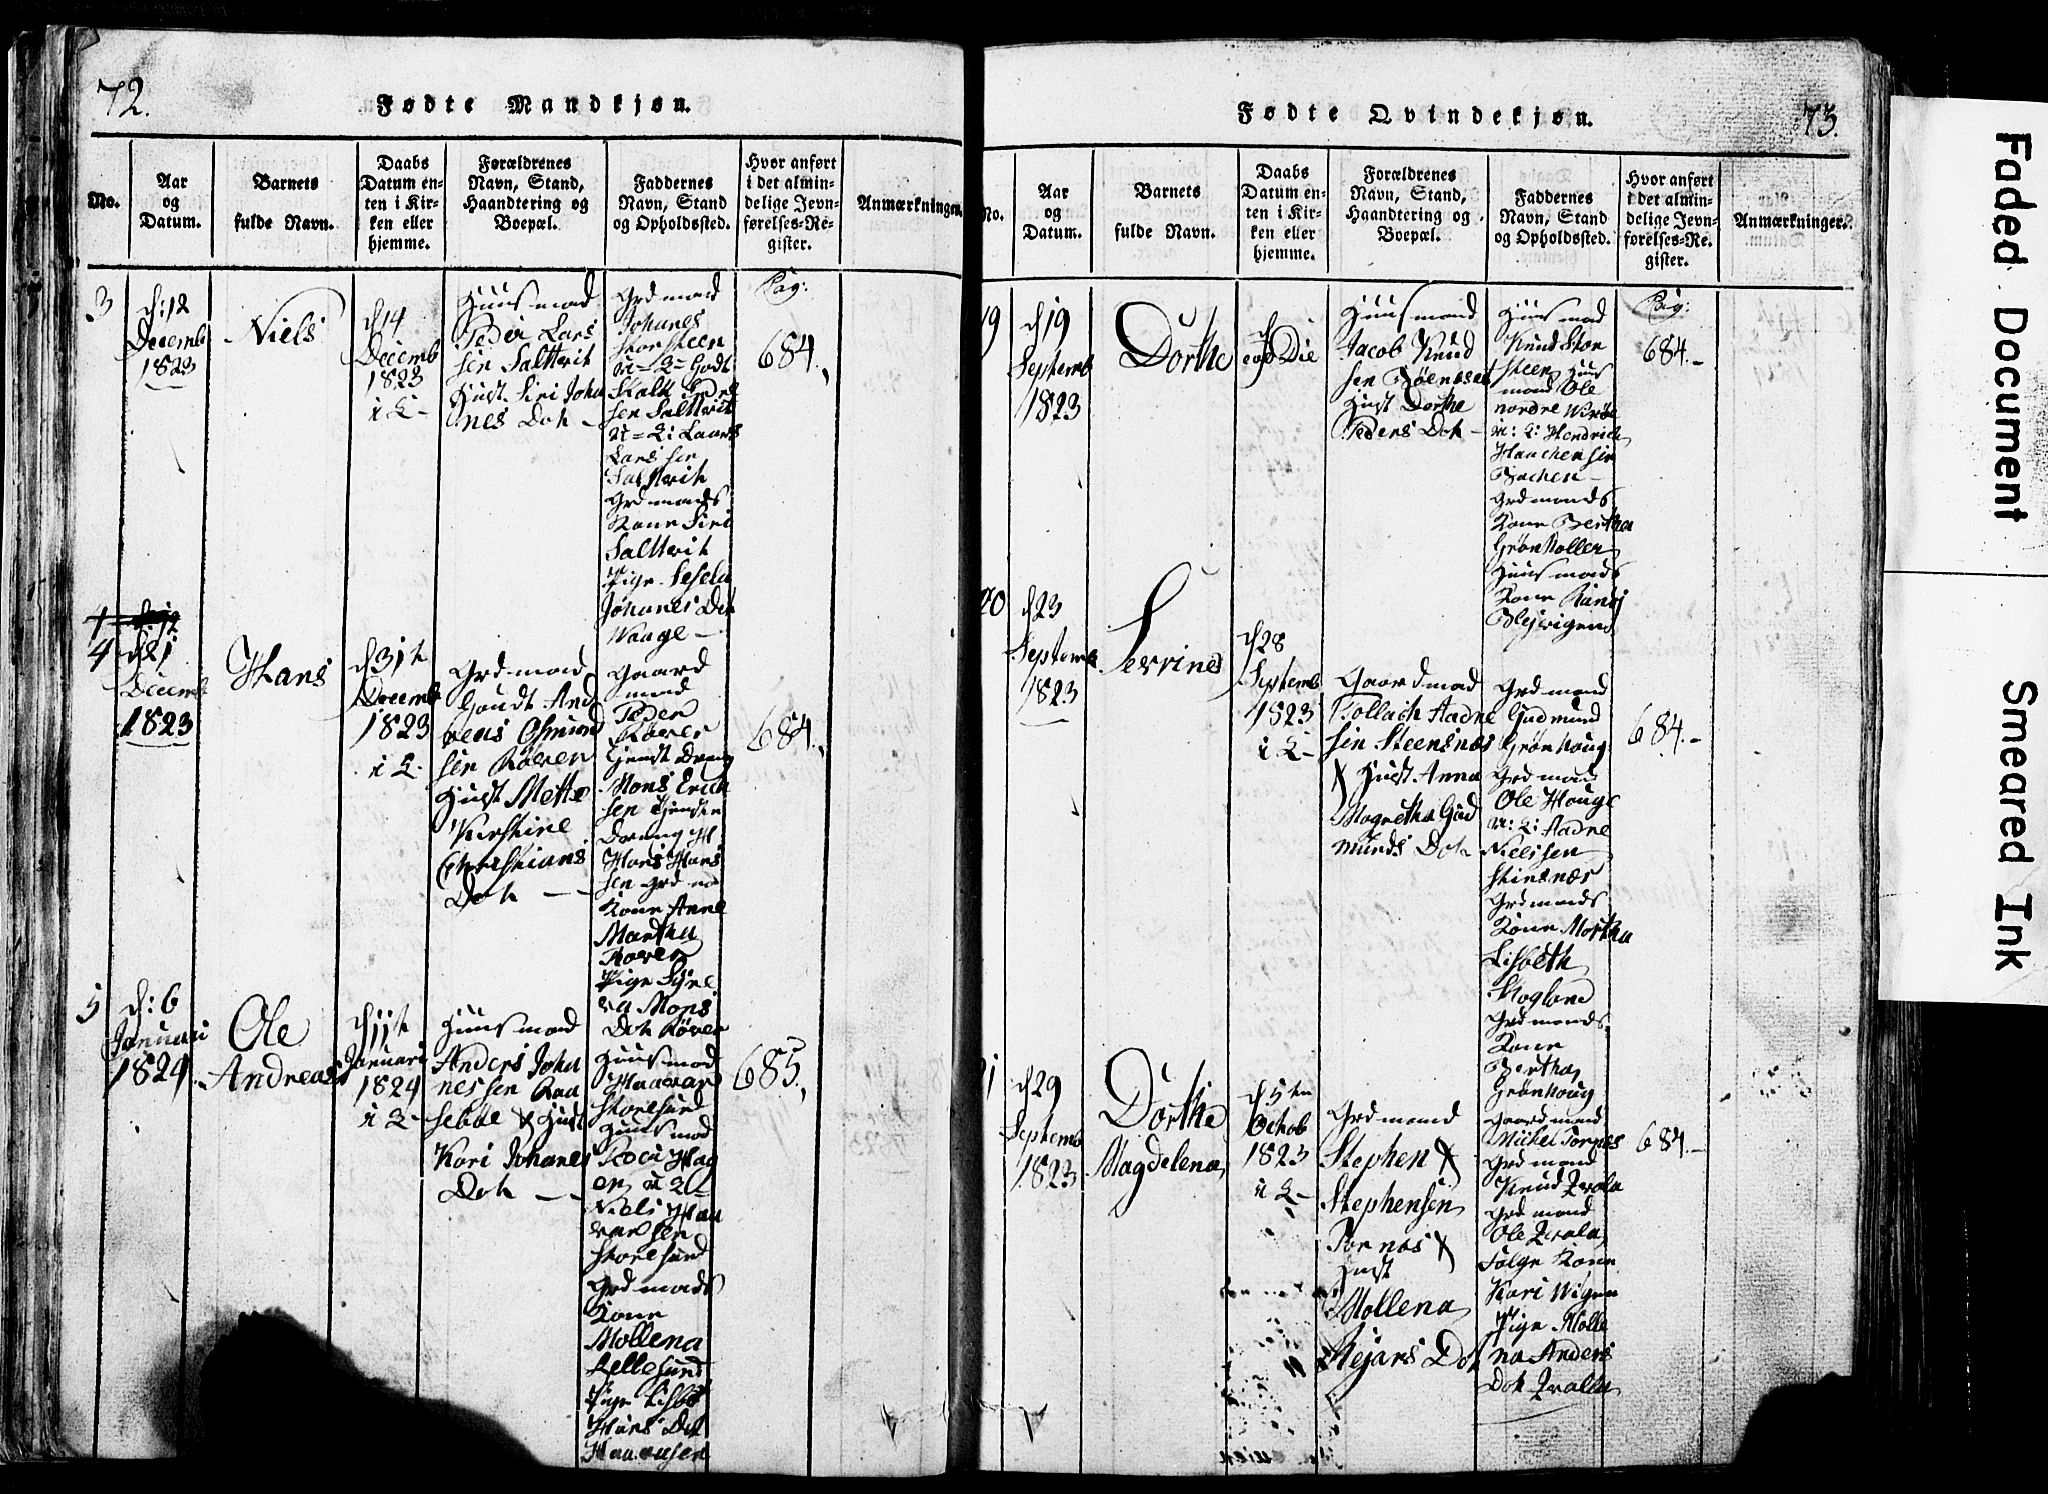 72.
Fødte Mandkjøn.
No.
Aar
og
Datum.
Barnets
fulde Navn.
Daabs
Datum en-
ten i Kir-
ken eller
hjemme.
Forældrenes
Navn, Stand,
Haandtering og
Boepæl.
Faddernes
Navn, Stand
og Opholdssted.
Hvor anført
i det almin-
delige Jevn-
førelses-Re-
gister.
Anmærkninger.
3
d: 12
Decemb
1823
Niels
d 14
Decemb
1823
i K-
Huusmand
Peder Lars
sen Saltvit
Hust. Siri Joha
nes Dot -
Grdmand
Johanes
Storsteen
Saltvit
Lars sen
Saltvit
Grdmands
Kone Siri
Saltvit
Pige
Johanes Dot
Waage -
Pag:
684.
4
d 21
Decemb
1823
Hans
d 31t
Decemb
1823
i K-
Grdmand
Goudt And
reas Osmund
sen Røver
Hust Mette
Kirstine
Christians
Dot - -
Gaard
mand
Peder
Røver
Tjenst Dreng
Mons Erich
sen Tjenste
Dreng H
Hans Hans
sen Grd m
Kone Anne
Martha
Røver
Pige
Mons
Dot Røver
684.
5
d: 6
Januari
1824
Ole
Andreas
d 11t
Januari
1824
i K-
Huusmand
Anders Joha
nessen Raa
sebøe Hust
Kari Johanes
Dot - -
Huusmand
Haavar
Storesund
Huusmand
Niels Haa
varsen
Storesund
Grdmands
Kone
Mollena
Lillesund
Pige Lisbe
Hans Dot
685.
73.
Fødte Qvindekjøn.
No.
Aar
og
Datum.
Barnets
fulde Navn.
Daabs
Datum en-
ten i Kir-
ken eller
hjemme.
Forældrenes
Navn, Stand,
Haandtering og
Boepæl.
Faddernes
Navn, Stand
og Opholdssted.
Hvor anført
i det almin-
delige Jevn-
førelses-Re-
gister.
Anmærkninger.
19
d 19
Septemb
1823
Dorthe
d
eod Die
Huusmand
Jacob Knud
sen
Hust Dorthe
Peders Dot -
Huusmand
Knud Stor
steen Huus
mand Ole
nordre
Hendrich
Bachen -
Grdmands
Kone Bertha
Grønkollen
Huusmands
Kone
Pag:
684.-
20
d 23
Septemb
1823
Serrine
d 28
Septemb
1823
i K-
Gaardmand
Tollach Aadne
sen Steensnæs
Hust. Anna
Magretha Gud
munds Dot
Grdmand
Gudmund
Grønhoug
Grdmand
Ole Houge
Aadne
Nielssen
Stinsnæs
Grdmands
Kone Martha
Lisbeth
Skogland
Grdmands
Kone
Bertha
Grønhoug
684.-
d 29
Septemb
1823
Dorthe
Magdelena
d 5tn
Octob
1823
i K-
Grdmand
Stephen
Stephensen
Tornes
Hust
Mollena
Rejars Dot
Gaardmand
Michel Tornes
Grdmand
Knud Qvala
Grdmand
Ole Qvala
Følge Kone
Kari Wigen
Pige Molle
na Anders
Dot Qvalen
684.-
Faded Document
Smeared Ink